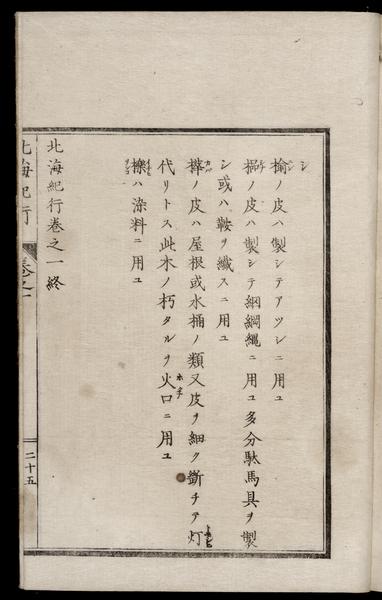 シ
楡ノ皮ハ製シテアツシニ用ユ
ノ皮ハ製シテ網綱縄ニ用ユ多分駄馬具ヲ製
シ或ハ鞍ヲ織スニ用ユ
樺ノ皮ハ屋根或水桶ノ類又皮ヲ細ク斷チテ灯
代リトス此木ノ朽タルヲ火口ニ用ユ
櫟ハ染料ニ用ユ
北海紀行巻之一終
北海紀行
巻之一
二十五